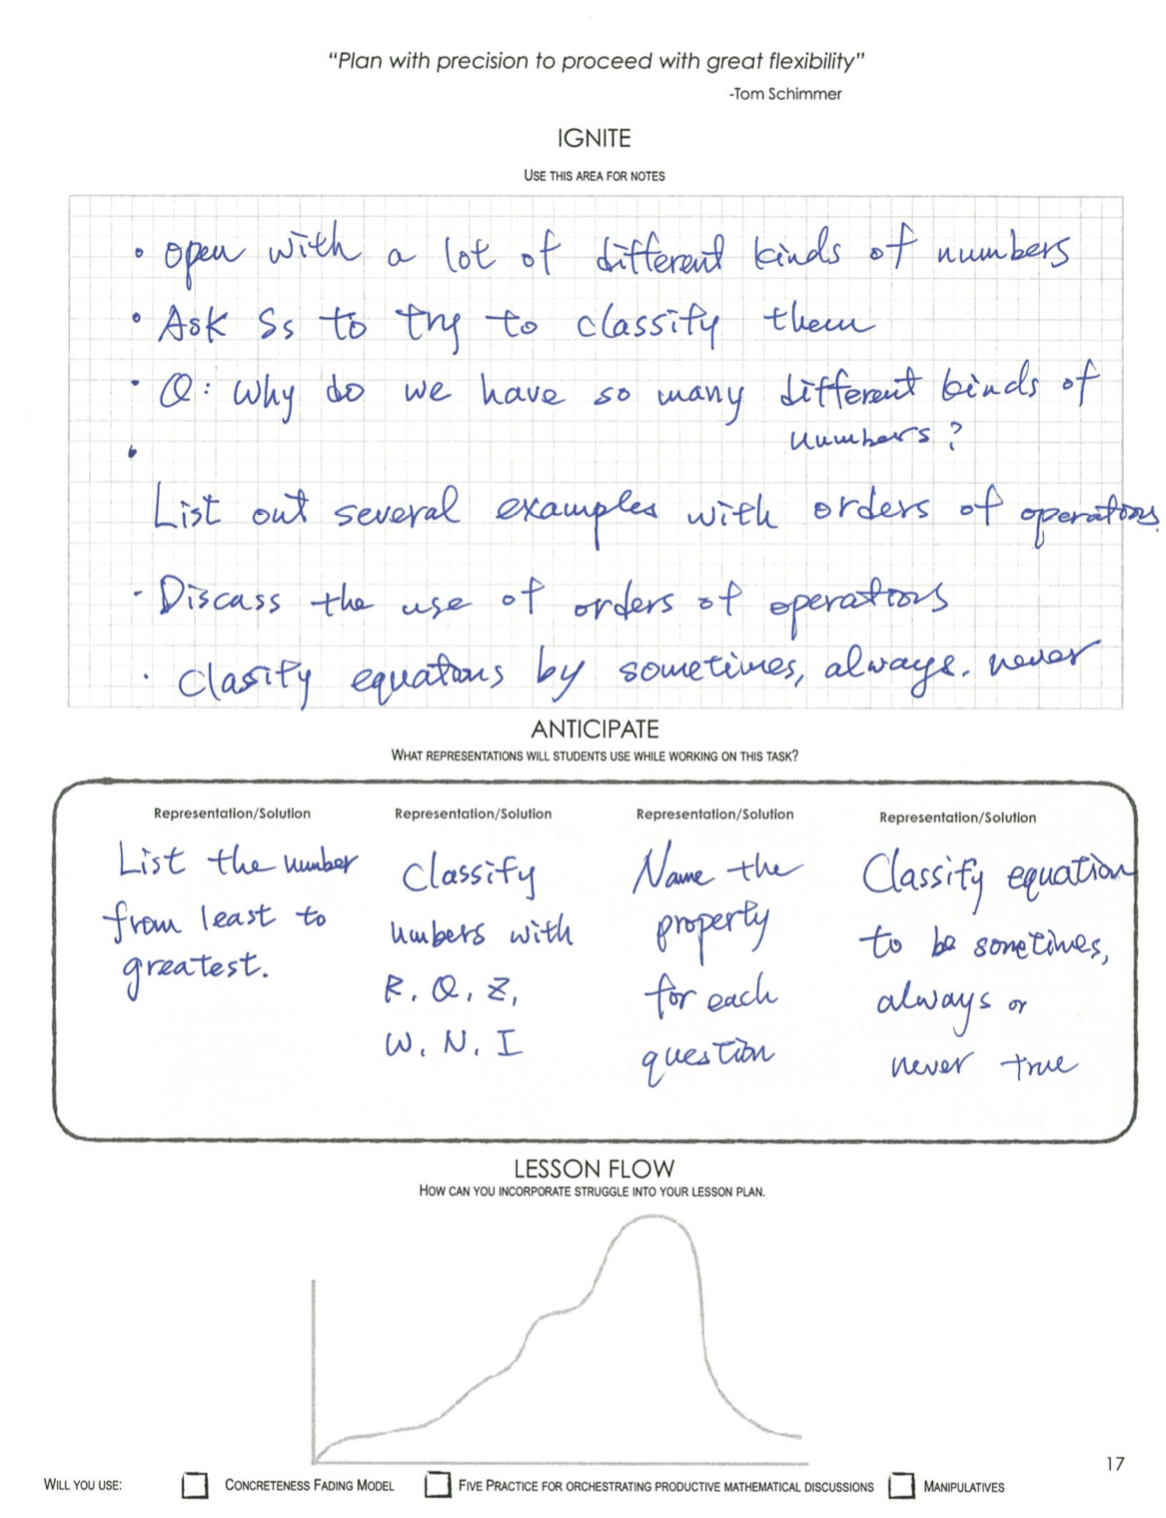 “Plan with precision to proceed with great flexibility”
-Tom Schimmer
IGNITE
USE THIS AREA FOR NOTES
• open with a lot of different kinds of numbers
• Ask Ss to try to classify them
• Q: Why do we have so many different kinds of
numbers?
•
List out several examples with orders of operations
· Discass the use of orders of operations
· Clasify equations by sometimes, always. never
ANTICIPATE
WHAT REPRESENTATIONS WILL STUDENTS USE WHILE WORKING ON THIS TASK?
Representation/Solution
List the number
from least to
greatest.
Representation/Solution
Classify
numbers with
R, Q, Z,
W, N, I
Representation/Solution
Name the
property
for each
question
Representation/Solution
Classify equation
to be sometimes,
always or
never true
LESSON FLOW
HOW CAN YOU INCORPORATE STRUGGLE INTO YOUR LESSON PLAN.
17
WILL YOU USE: CONCRETENESS FADING MODEL FIVE PRACTICE FOR ORCHESTRATING PRODUCTIVE MATHEMATICAL DISCUSSIONS MANIPULATIVES